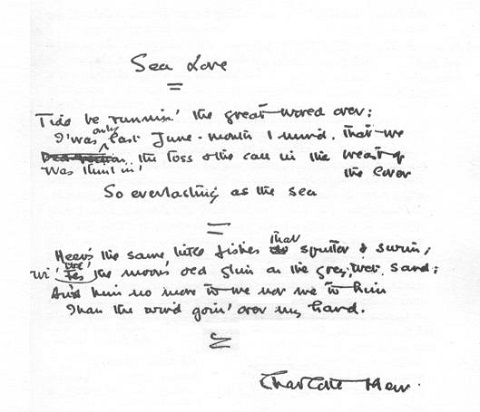 Sea Love
Tide be runnin' the great world over:
'Twas only last June-month I mind that we
Was thinkin' the toss & the call in the breast of the lover
So everlasting as the sea
Heer's the same little fishes that sputter & swim,
Wi' the moon's old glim on the grey, wet sand;
An' him no more to me nor me to him
Than the wind goin' over my hand.
Charlotte Mew.